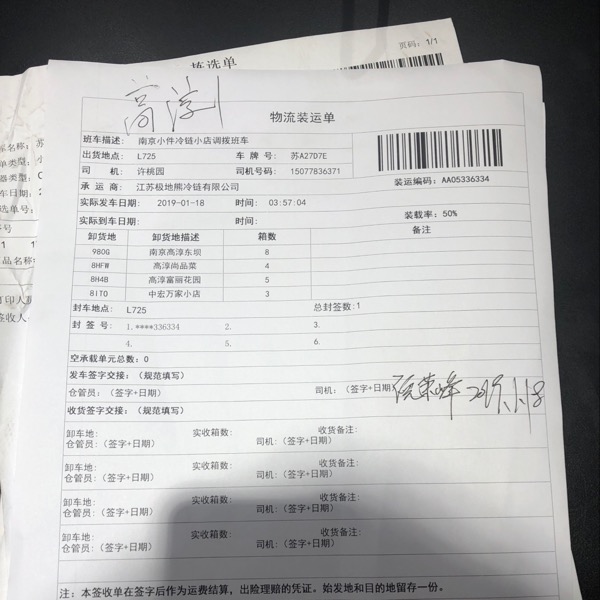 页码: 1/1
拣选单
高淳
物流装运单
班车描述: 南京小件冷链小店调拨班车
出货地点: L725 车 牌 号: 苏A27D7E
司 机: 许桃园 司机号码: 15077836371
承 运 商: 江苏极地熊冷链有限公司
装运编码: AA05336334
实际发车日期: 2019-01-18 时间: 03:57:04
实际到车日期: 时间: 装载率: 50%
卸货地 卸货地描述 箱数 备注
980G 南京高淳东坝 8
8HFW 高淳尚品菜 4
8H4B 高淳富丽花园 5
8IT0 中宏万家小店 3
封车地点: L725 总封签数:1
封 签 号: 1.****336334 2. 3.
4. 5. 6.
空承载单元总数: 0
发车签字交接: (规范填写)
仓管员: (签字+日期) 司机: (签字+日期)
收货签字交接: (规范填写)
卸车地: 实收箱数: 收货备注:
仓管员: (签字+日期) 司机: (签字+日期)
卸车地: 实收箱数: 收货备注:
仓管员: (签字+日期) 司机: (签字+日期)
卸车地: 实收箱数: 收货备注:
仓管员: (签字+日期) 司机: (签字+日期)
卸车地: 实收箱数: 收货备注:
仓管员: (签字+日期) 司机: (签字+日期)
注: 本签收单在签字后作为运费结算, 出险理赔的凭证。始发地和目的地留存一份。